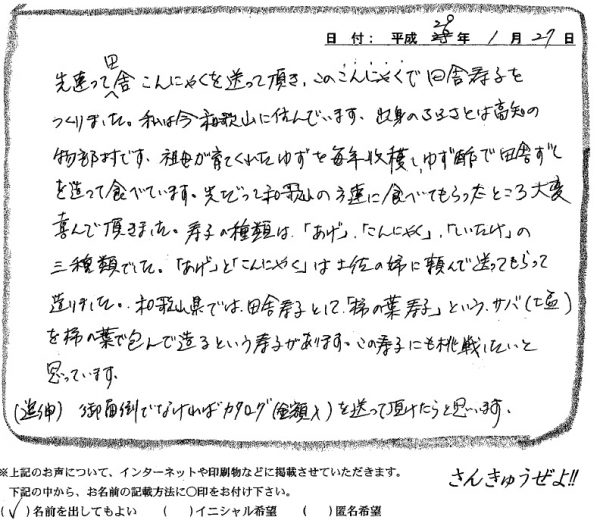 日 付 : 平成 28 年 1 月 27 日
先達って田舎こんにゃくを送って頂き、このこんにゃくで田舎寿子を
つくりました。私は今和歌山に住んでいます、出身のふるさとは高知の
物部村です、祖母が育てくれたゆずを毎年収穫しゆず酢で田舎ずし
を造って食べています。先だって和歌山の方達に食べてもらったところ大変
喜んで頂きました。寿子の種類は、「あげ」、「こんにゃく」、「しいたけ」の
三種類でした。「あげ」と「こんにゃく」は土佐の姉に頼んで送ってもらって
造りました。和歌山県では、田舎寿子として、「柿の葉寿子」という、サバ(塩)
を柿の葉で包んで造るという寿子があります。この寿子にも挑戦したいと
思っています。
(追伸) 御面倒でなければカタログ(金額入)を送って頂けたらと思います。
さんきゅうぜよ!!
※上記のお声について、インターネットや印刷物などに掲載させていただきます。
下記の中から、お名前の記載方法に○印をお付け下さい。
(✓)名前を出してもよい ( )イニシャル希望 ( )匿名希望